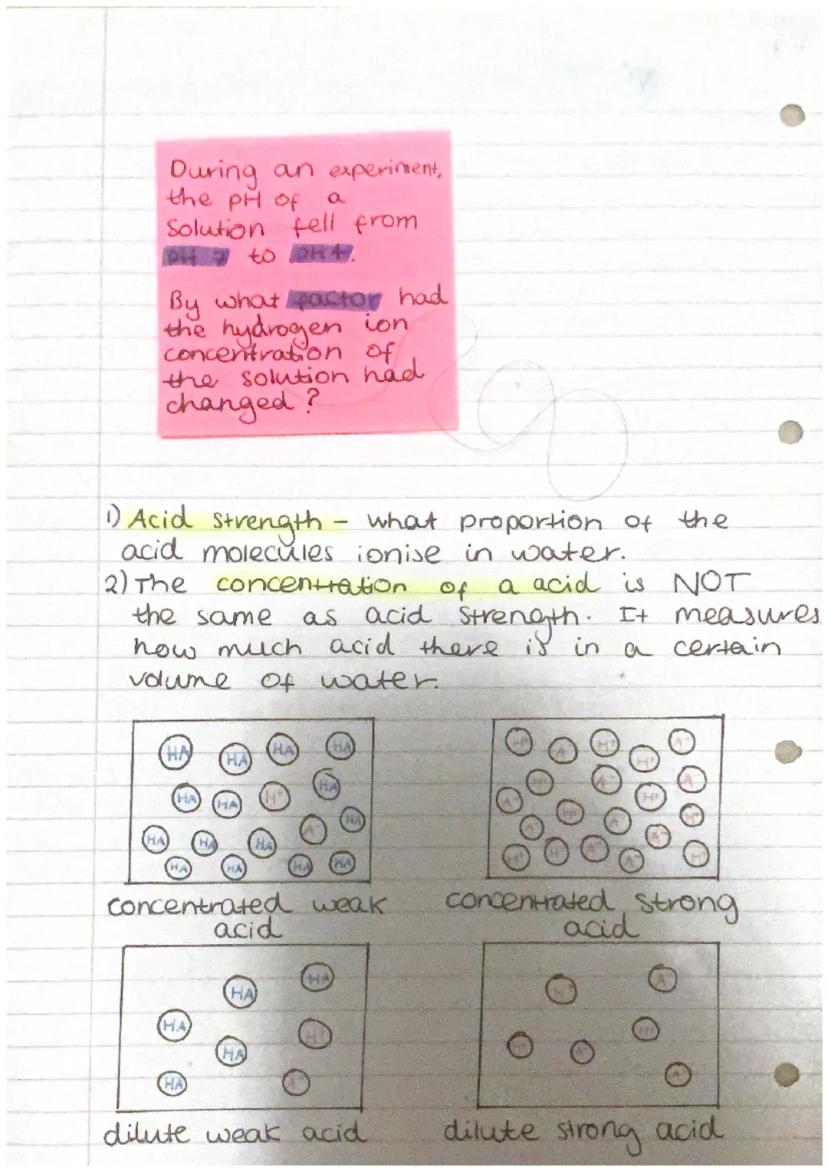 During an experiment,
the pH of a
solution fell from
pH 7 to pH 4.
By what factor had
the hydrogen ion
concentration of
the solution had
changed?
1) Acid strength - what proportion of the
acid molecules ionise in water.
2) The concentration of a acid is NOT
the same as acid strength. It measures
how much acid there is in a certain
volume of water.
HA HA HA HA
HA HA H+ HA
HA HA HA A- HA
HA HA HA HA
A- H+ H+ A-
H+ A- H+ A-
A- H+ A- H+
A- A-
H+ H+ A- A- H+
concentrated weak
acid
concentrated strong
acid
HA HA
HA H+
HA
HA A-
H+ A-
H+ A- H+
A-
dilute weak acid
dilute strong acid